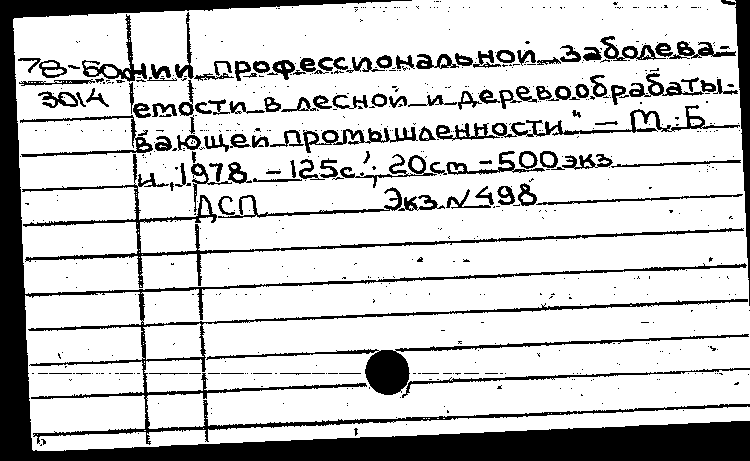 78-60 нии профессиональной заболева-
3014 емости в лесной и деревообрабаты-
вающей промышленности" – М.: Б.
и, 1978. – 125с.; 20см – 500 экз.
ДСП Экз. N 498